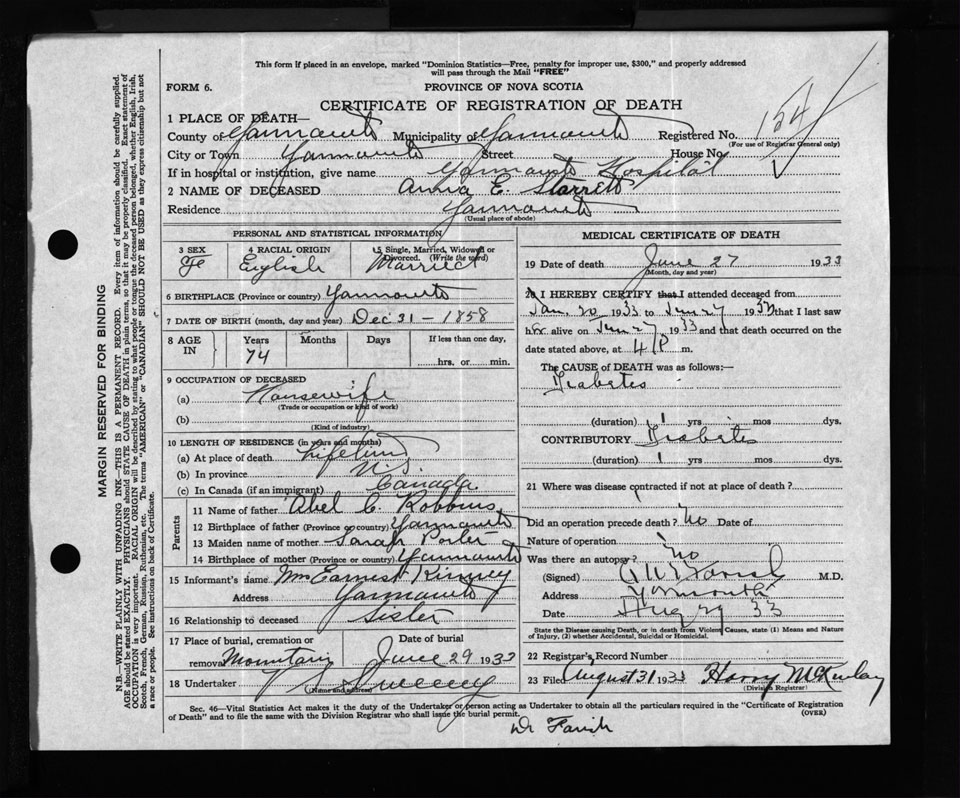 This form if placed in an envelope, marked "Dominion Statistics—Free, penalty for improper use, $300," and properly addressed
will pass through the Mail "FREE"
FORM 6.
PROVINCE OF NOVA SCOTIA
CERTIFICATE OF REGISTRATION OF DEATH
1 PLACE OF DEATH—
County of Yarmouth Municipality of Yarmouth Registered No. 154
(For use of Registrar General only)
City or Town Yarmouth Street House No.
If in hospital or institution, give name Yarmouth Hospital
2 NAME OF DECEASED Anna E. Starrett
Residence Yarmouth
(Usual place of abode)
PERSONAL AND STATISTICAL INFORMATION
3 SEX Fe
4 RACIAL ORIGIN English
5 Single, Married, Widowed or Divorced. (Write the word) Married
6 BIRTHPLACE (Province or country) Yarmouth
7 DATE OF BIRTH (month, day and year) Dec 31 - 1858
8 AGE IN Years 74 Months Days If less than one day, hrs. or min.
9 OCCUPATION OF DECEASED
(a) Housewife
(Trade or occupation or kind of work)
(b)
(Kind of industry)
10 LENGTH OF RESIDENCE (in years and months)
(a) At place of death Lifetime
(b) In province N.S.
(c) In Canada (if an immigrant) Canada.
Parents
11 Name of father Abel C. Robbins
12 Birthplace of father (Province or country) Yarmouth
13 Maiden name of mother Sarah Porter
14 Birthplace of mother (Province or country) Yarmouth
15 Informant's name Mrs Earnest Kinney
Address Yarmouth
16 Relationship to deceased Sister
17 Place of burial, cremation or removal Mountain
Date of burial June 29 1933
18 Undertaker V S Sweeney
(Name and address)
MEDICAL CERTIFICATE OF DEATH
19 Date of death June 27 1933
(Month, day and year)
20 I HEREBY CERTIFY that I attended deceased from
Jan. 20 1933 to Jun 27 1933 that I last saw
her alive on Jun 27 1933 and that death occurred on
date stated above, at 4 P m.
The CAUSE OF DEATH was as follows:—
Diabetes
(duration) 1 yrs mos dys.
CONTRIBUTORY Diabetes
(duration) 1 yrs mos dys.
21 Where was disease contracted if not at place of death?
Did an operation precede death? No Date of
Nature of operation
Was there an autopsy? no
(Signed) M.D.
Address Yarmouth
Date Aug 29 33
State the Disease causing Death, or in death from Violent Causes, state (1) Means and Nature
of Injury, (2) whether Accidental, Suicidal or Homicidal.
22 Registrar's Record Number
23 Filed August 31 1933 Harry McKinlay
(Division Registrar)
Sec. 46—Vital Statistics Act makes it the duty of the Undertaker or person acting as Undertaker to obtain all the particulars required in the "Certificate of Registration
of Death" and to file the same with the Division Registrar who shall issue the burial permit.
(OVER)
Dr Farish
MARGIN RESERVED FOR BINDING
N.B.—WRITE PLAINLY WITH UNFADING INK—THIS IS A PERMANENT RECORD. Every item of information should be carefully supplied.
AGE should be stated EXACTLY. PHYSICIANS should STATE CAUSE OF DEATH in plain terms, so that it may be properly classified. Exact statement of
OCCUPATION is very important. RACIAL ORIGIN will be described by stating to what people or tongue the deceased person belonged, whether English, Irish,
Scotch, French, German, Russian, Ruthenian, etc. The terms "AMERICAN" or "CANADIAN" SHOULD NOT BE USED as they express citizenship but not
a race or people. See instructions on back of Certificate.